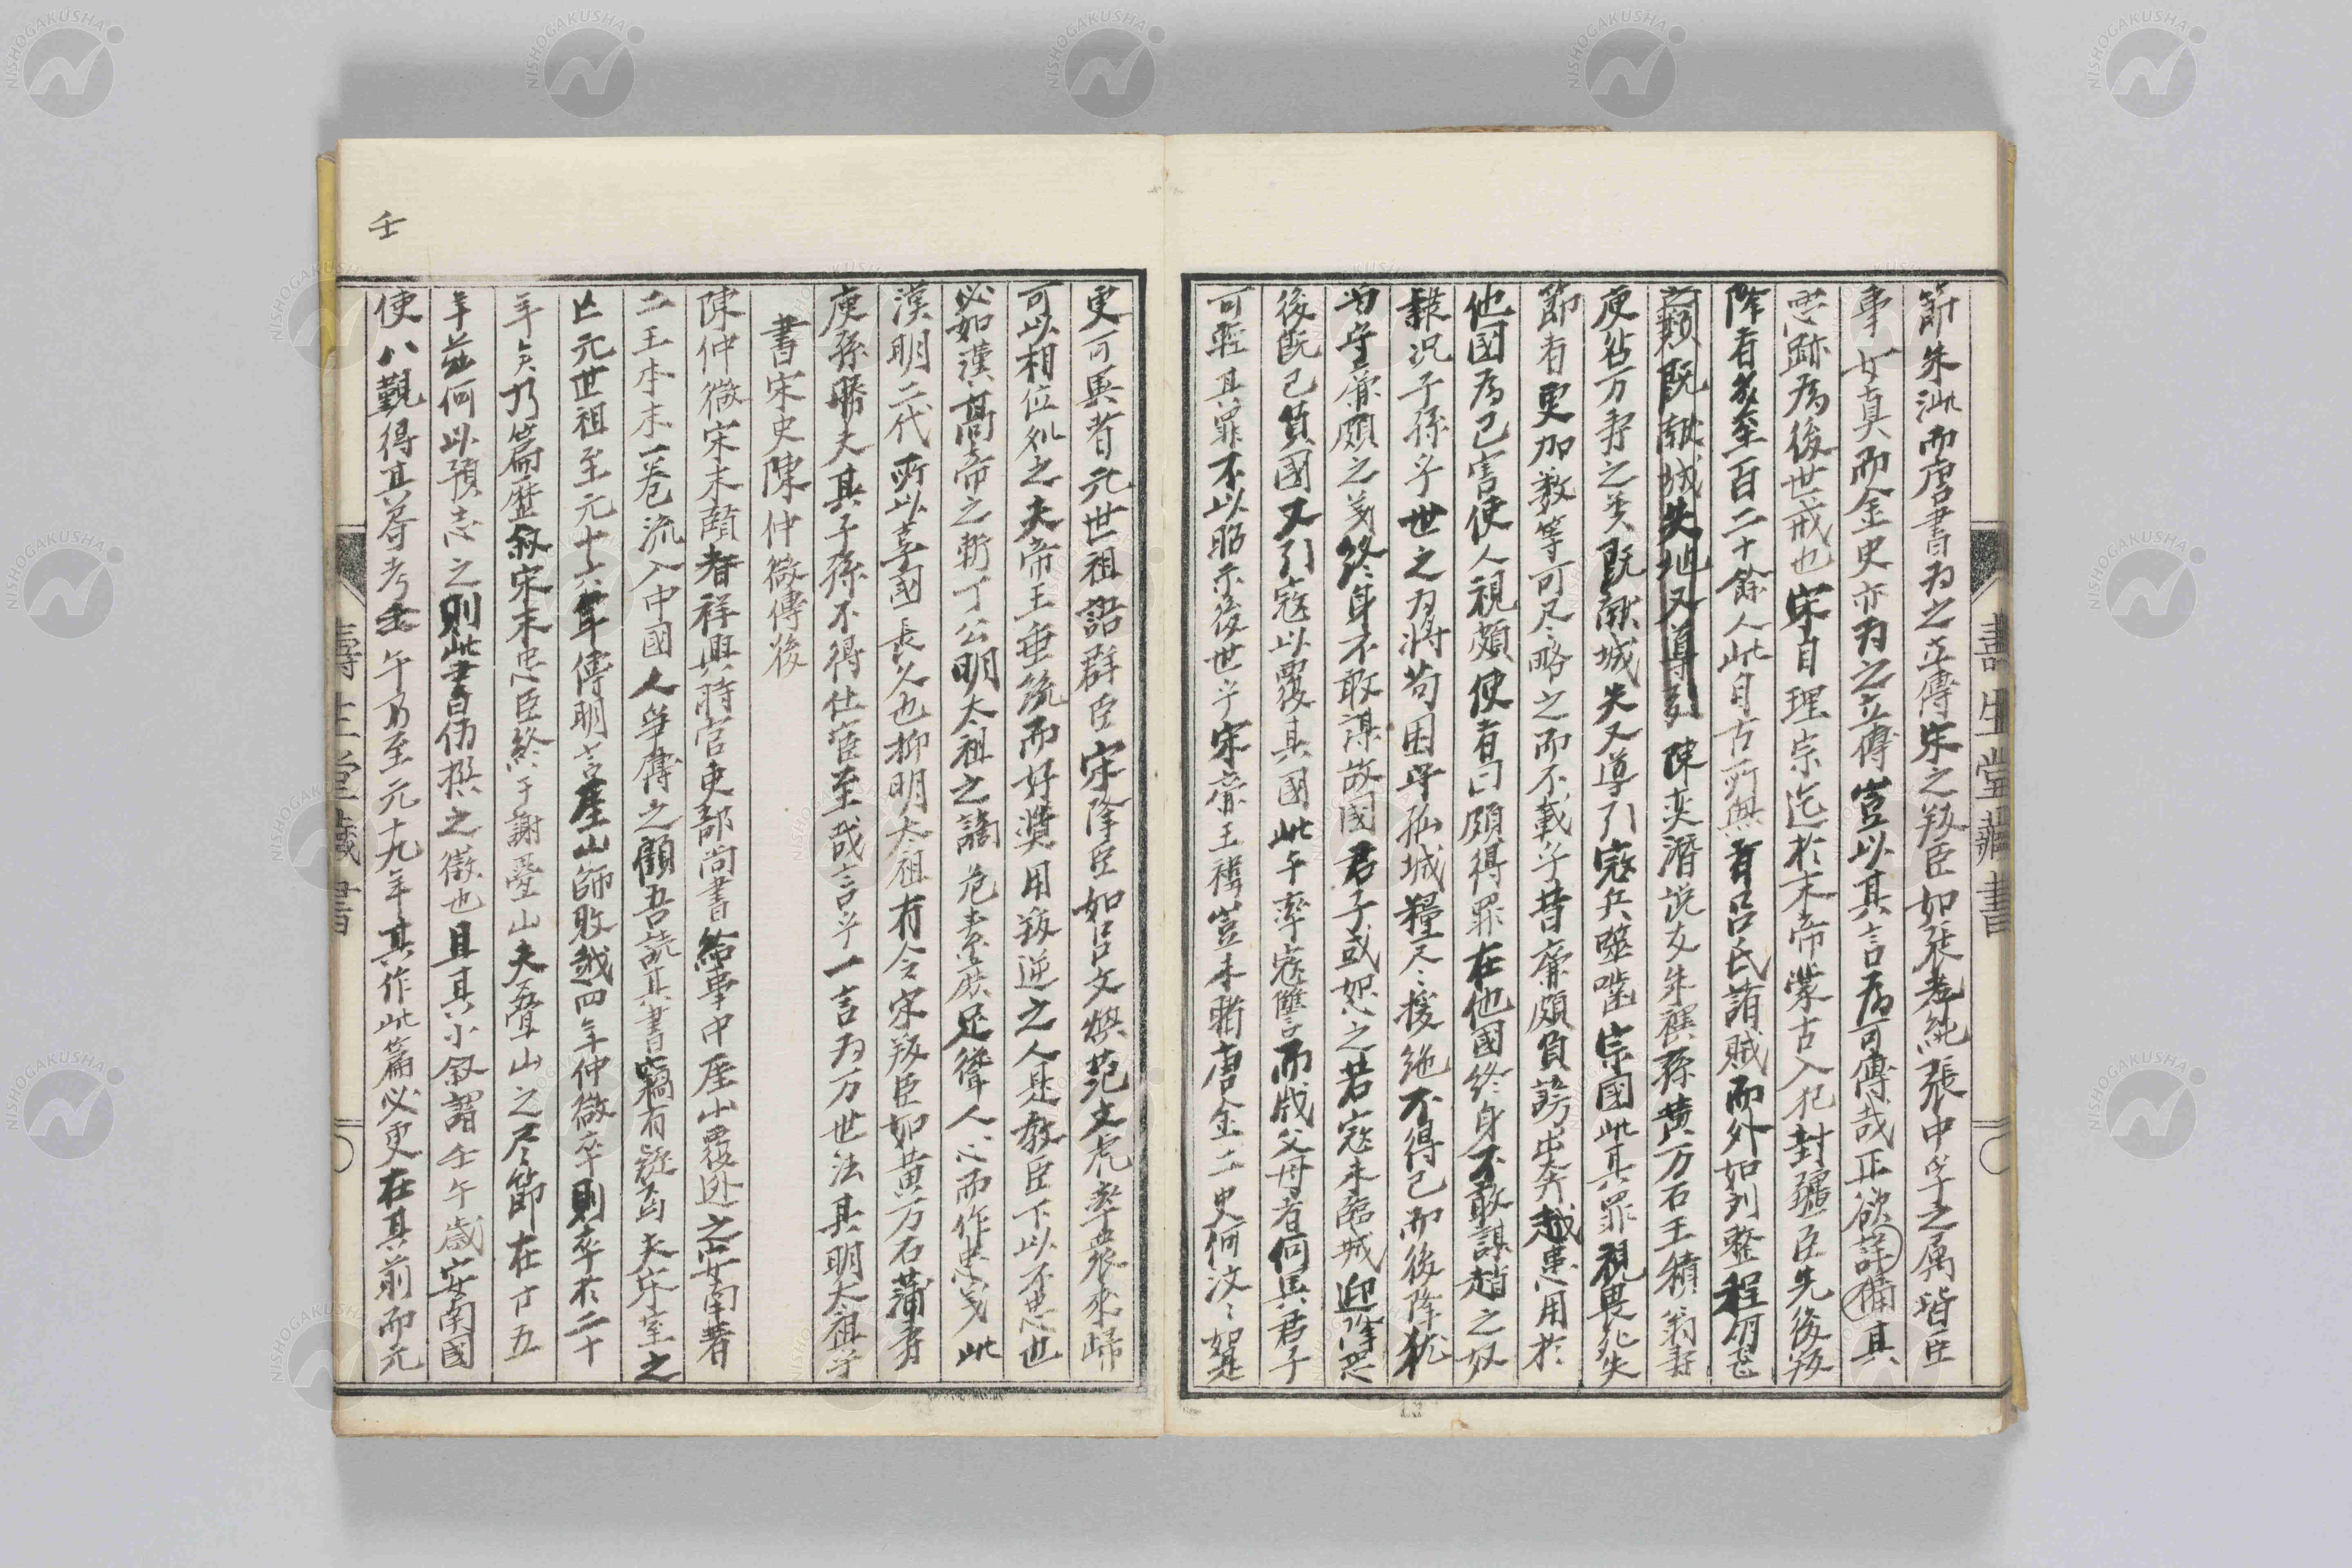 節朱泚而唐書為之立傳宋之叛臣如張孝純張中孚之属皆臣
事女真而金史亦為之立傳豈以其言為可傳哉正欲詳備其
悪跡為後世戒也宋自理宗迄於末帝蒙古入犯封疆臣先後叛
降者多至百二十餘人此自古所無有呂氏諸賊而外如列整程
之類既献城失地又導引陳奕潜説友朱禩孫黄万石王積翁
庚范万寿之類既献城失又導引寇兵噬囓宗國此其罪視畏死失
節者更加数等可尽略之而不載乎昔廉頗負謗出奔越患用於
他國為己害使人視頗使者曰頗得罪在他國終身不敢謀趙之奴
隸況子孫乎世之為将苟困守孤城糧尽援絶不得已而後降猶
為守廉頗之義終身不敢謀故國君子或恕之若寇未臨城迎降恐
後既已負國又引寇以覆其國此午率寇讐而戕父母者何異君子
可輕其罪不以昭示後世乎宋帝王禋豈未睹唐金二史何汶々如是
更可異者元世祖詔群臣宋降臣如呂文煥范文虎率衆來歸
可以相位処之夫帝王垂統而好奨用叛逆之人是教臣下以不忠也
必如漢高帝之斬丁公明太祖之謫危素庶足聳人心而作忠義此
漢明二代所以享國長久也抑明太祖有令宋叛臣如黄万石蒲寿
庚孫勝夫其子孫不得仕宦至哉言乎一言為万世法其明太祖乎
書宋史陳仲微傳後
陳仲微宋末顔者祥興時官吏部尚書給事中厓山覆逊之安南著
二王本末一巻流入中國人争傳之顧吾読其書竊有疑焉夫宋室之
亡元世祖至元十六年傳明言厓山師敗越四年仲微卒則卒於二十
年矣乃篇歴叙宋末忠臣終于謝畳山夫畳山之尽節在廿五
年並何以預志之則此書百偽撰之徴也且其小叙謂壬午歳安南國
使入覲得其舜考壬午乃至元十九年其作此篇必更在其前而元
壬
壽生堂蔵書
壽生堂蔵書